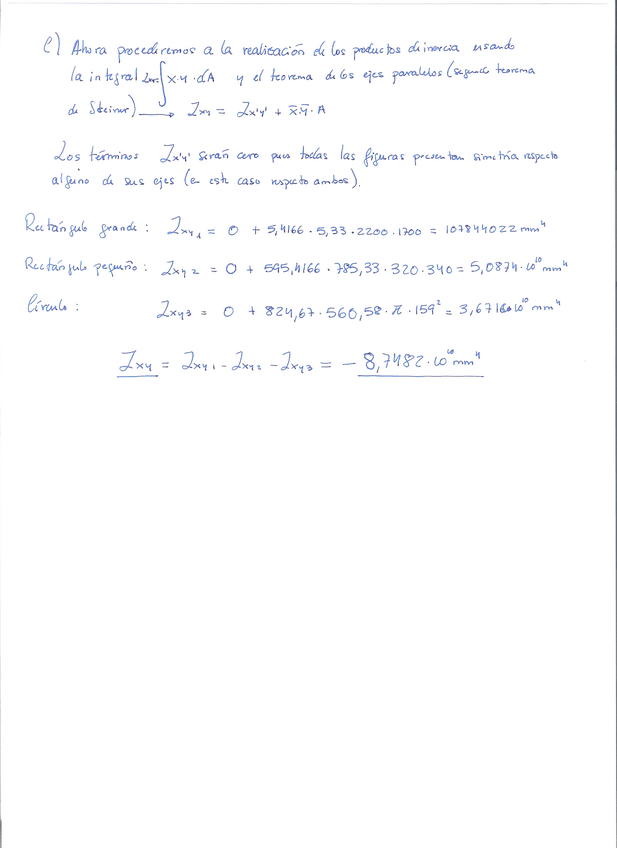 c) Ahora procederemos a la realización de los productos de inercia usando
la integral Ixy=∫x·y·dA y el teorema de los ejes paralelos (segundo teorema
de Steiner) → Ixy = Ix'y' + x̄·ȳ·A
Los términos Ix'y' serán cero pues todas las figuras presentan simetría respecto
alguno de sus ejes (en este caso respecto ambos).
Rectángulo grande: Ixy1 = 0 + 5,4166·5,33·2200·1700 = 107844022 mm⁴
Rectángulo pequeño: Ixy2 = 0 + 595,4166·785,33·320·340 = 5,0874·10¹⁰ mm⁴
Círculo: Ixy3 = 0 + 824,67·560,58·π·159² = 3,6716·10¹⁰ mm⁴
Ixy = Ixy1 - Ixy2 - Ixy3 = - 8,7482·10¹⁰ mm⁴